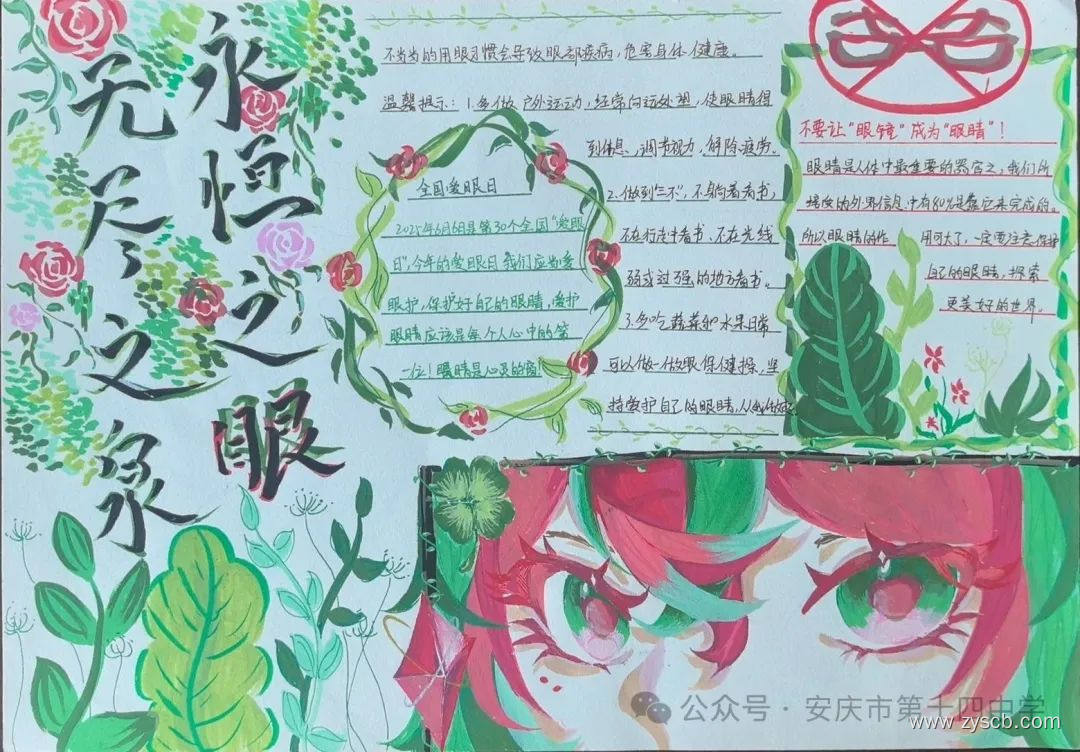 永恒之眼
无尽之泉
不当当的用眼习惯会导致眼部疾病，危害身体健康。
温馨提示：1.多做户外运动，经常向远处望，使眼睛得
到休息，调节视力，解除疲劳。
2.做到"三不"，不躺着看书，
不在行走中看书、不在光线
弱或过强的地方看书。
3.多吃蔬菜和水果日常
可以做一做眼保健操，坚
持爱护自己的眼睛，从我做起
全国爱眼日
2025年6月6日是第30个全国"爱眼
日"，今年的爱眼日我们应当爱
眼护，保护好自己的眼睛，爱护
眼睛应该是每个人心中的第
一位！眼睛是心灵的窗！
不要让"眼镜"成为"眼睛"！
眼睛是人体中最重要的器官之，我们所
接收的外界信息中有80%是靠它来完成的。
所以眼睛的作用可大了，一定要注意保护
自己的眼睛，探索
更美好的世界。
公众号·安庆市第十四中学
www.zyscb.com